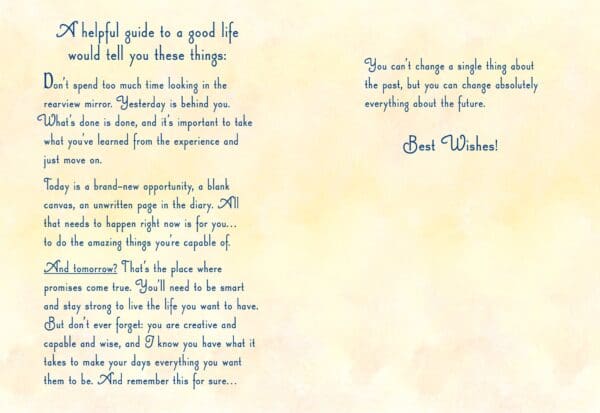 A helpful guide to a good life
would tell you these things:
Don't spend too much time looking in the
rearview mirror. Yesterday is behind you.
What's done is done, and it's important to take
what you've learned from the experience and
just move on.
Today is a brand-new opportunity, a blank
canvas, an unwritten page in the diary. All
that needs to happen right now is for you...
to do the amazing things you're capable of.
And tomorrow? That's the place where
promises come true. You'll need to be smart
and stay strong to live the life you want to have.
But don't ever forget: you are creative and
capable and wise, and I know you have what it
takes to make your days everything you want
them to be. And remember this for sure...
You can't change a single thing about
the past, but you can change absolutely
everything about the future.
Best Wishes!